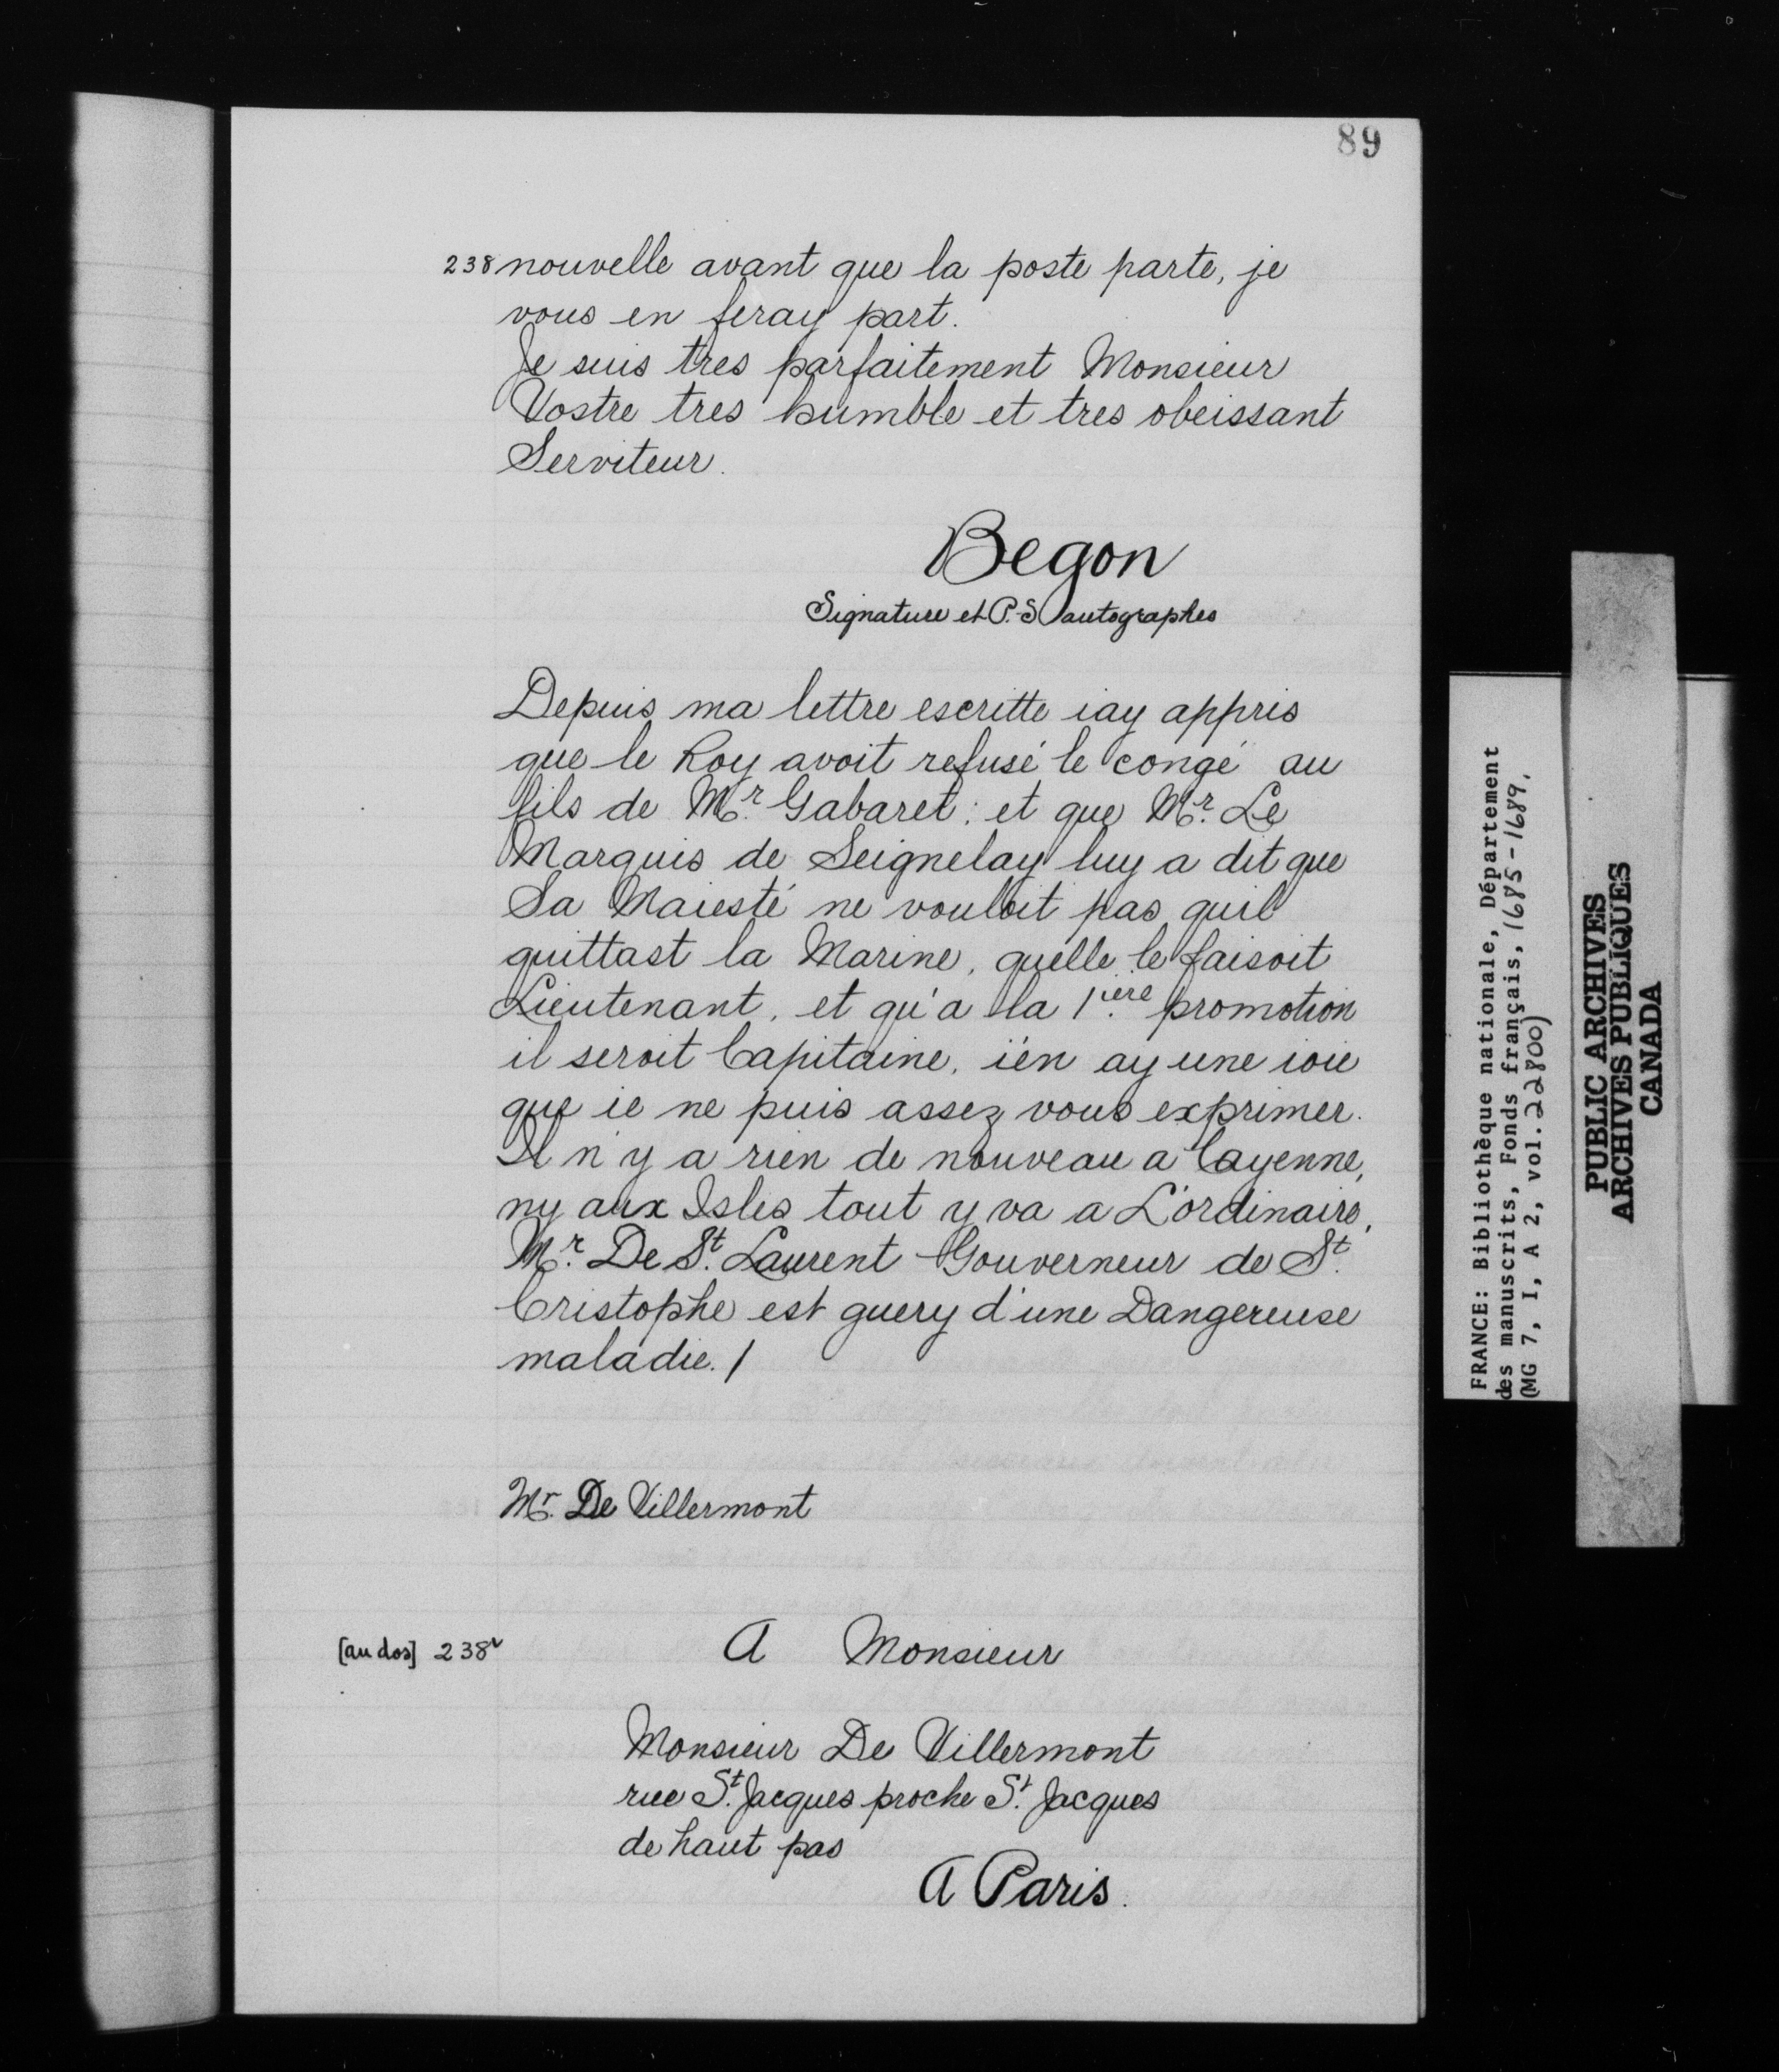 89
238 nouvelle avant que la poste parte, je
vous en feray part.
Je suis tres parfaitement Monsieur
Vostre tres humble et tres obeissant
Serviteur.
Begon
Signature et P.-S autographes
Depuis ma lettre escritte iay appris
que le Roy avoit refusé le congé au
fils de Mr. Gabaret: et que Mr. Le
Marquis de Seignelay luy a dit que
Sa Maiesté ne vouloit pas quil
quittast la Marine, quelle le faisoit
Lieutenant, et qu'a la 1.iere promotion
il seroit Capitaine, i'en ay une ioie
que ie ne puis assez vous exprimer.
Il n'y a rien de nouveau a Cayenne,
ny aux Isles tout y va a L'ordinaire,
Mr. De St. Laurent Gouverneur de St.
Cristophe est guery d'une Dangereuse
maladie. /
Mr. De Villermont
[au dos] 238v A Monsieur
Monsieur De Villermont
rue St. Jacques proche St. Jacques
de haut pas
A Paris.
FRANCE: Bibliothèque nationale, Département
des manuscrits, Fonds français, 1685-1689.
(MG 7, I, A 2, vol. 22800)
PUBLIC ARCHIVES
ARCHIVES PUBLIQUES
CANADA